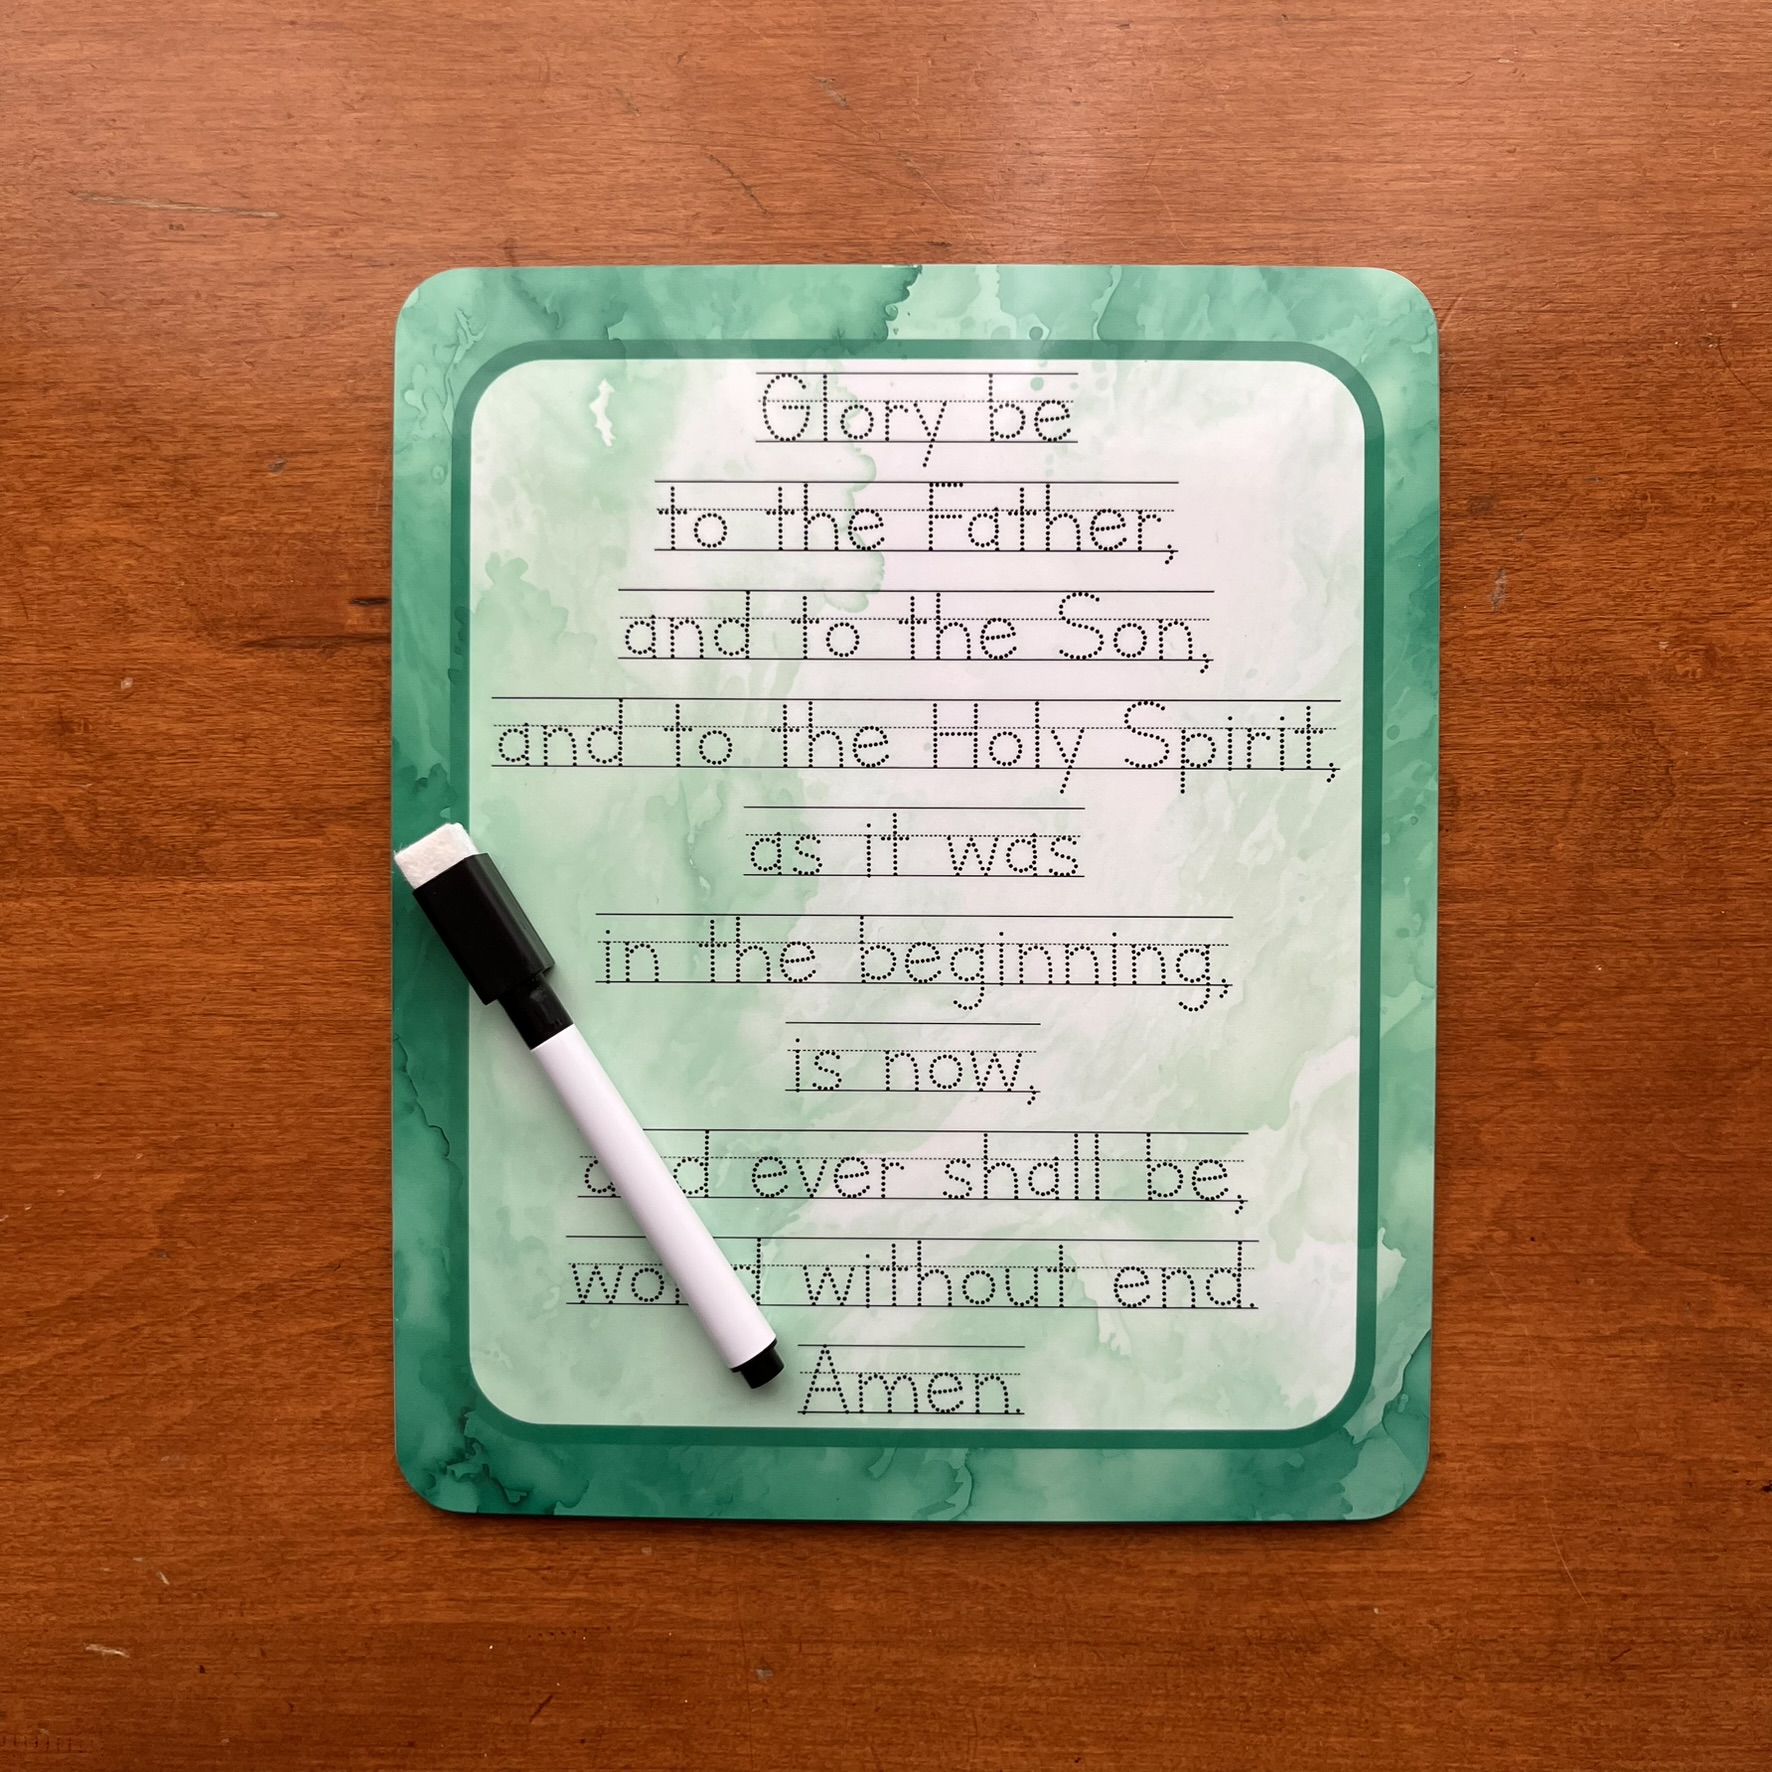 Glory be
to the Father,
and to the Son,
and to the Holy Spirit,
as it was
in the beginning,
is now,
and ever shall be,
world without end.
Amen.